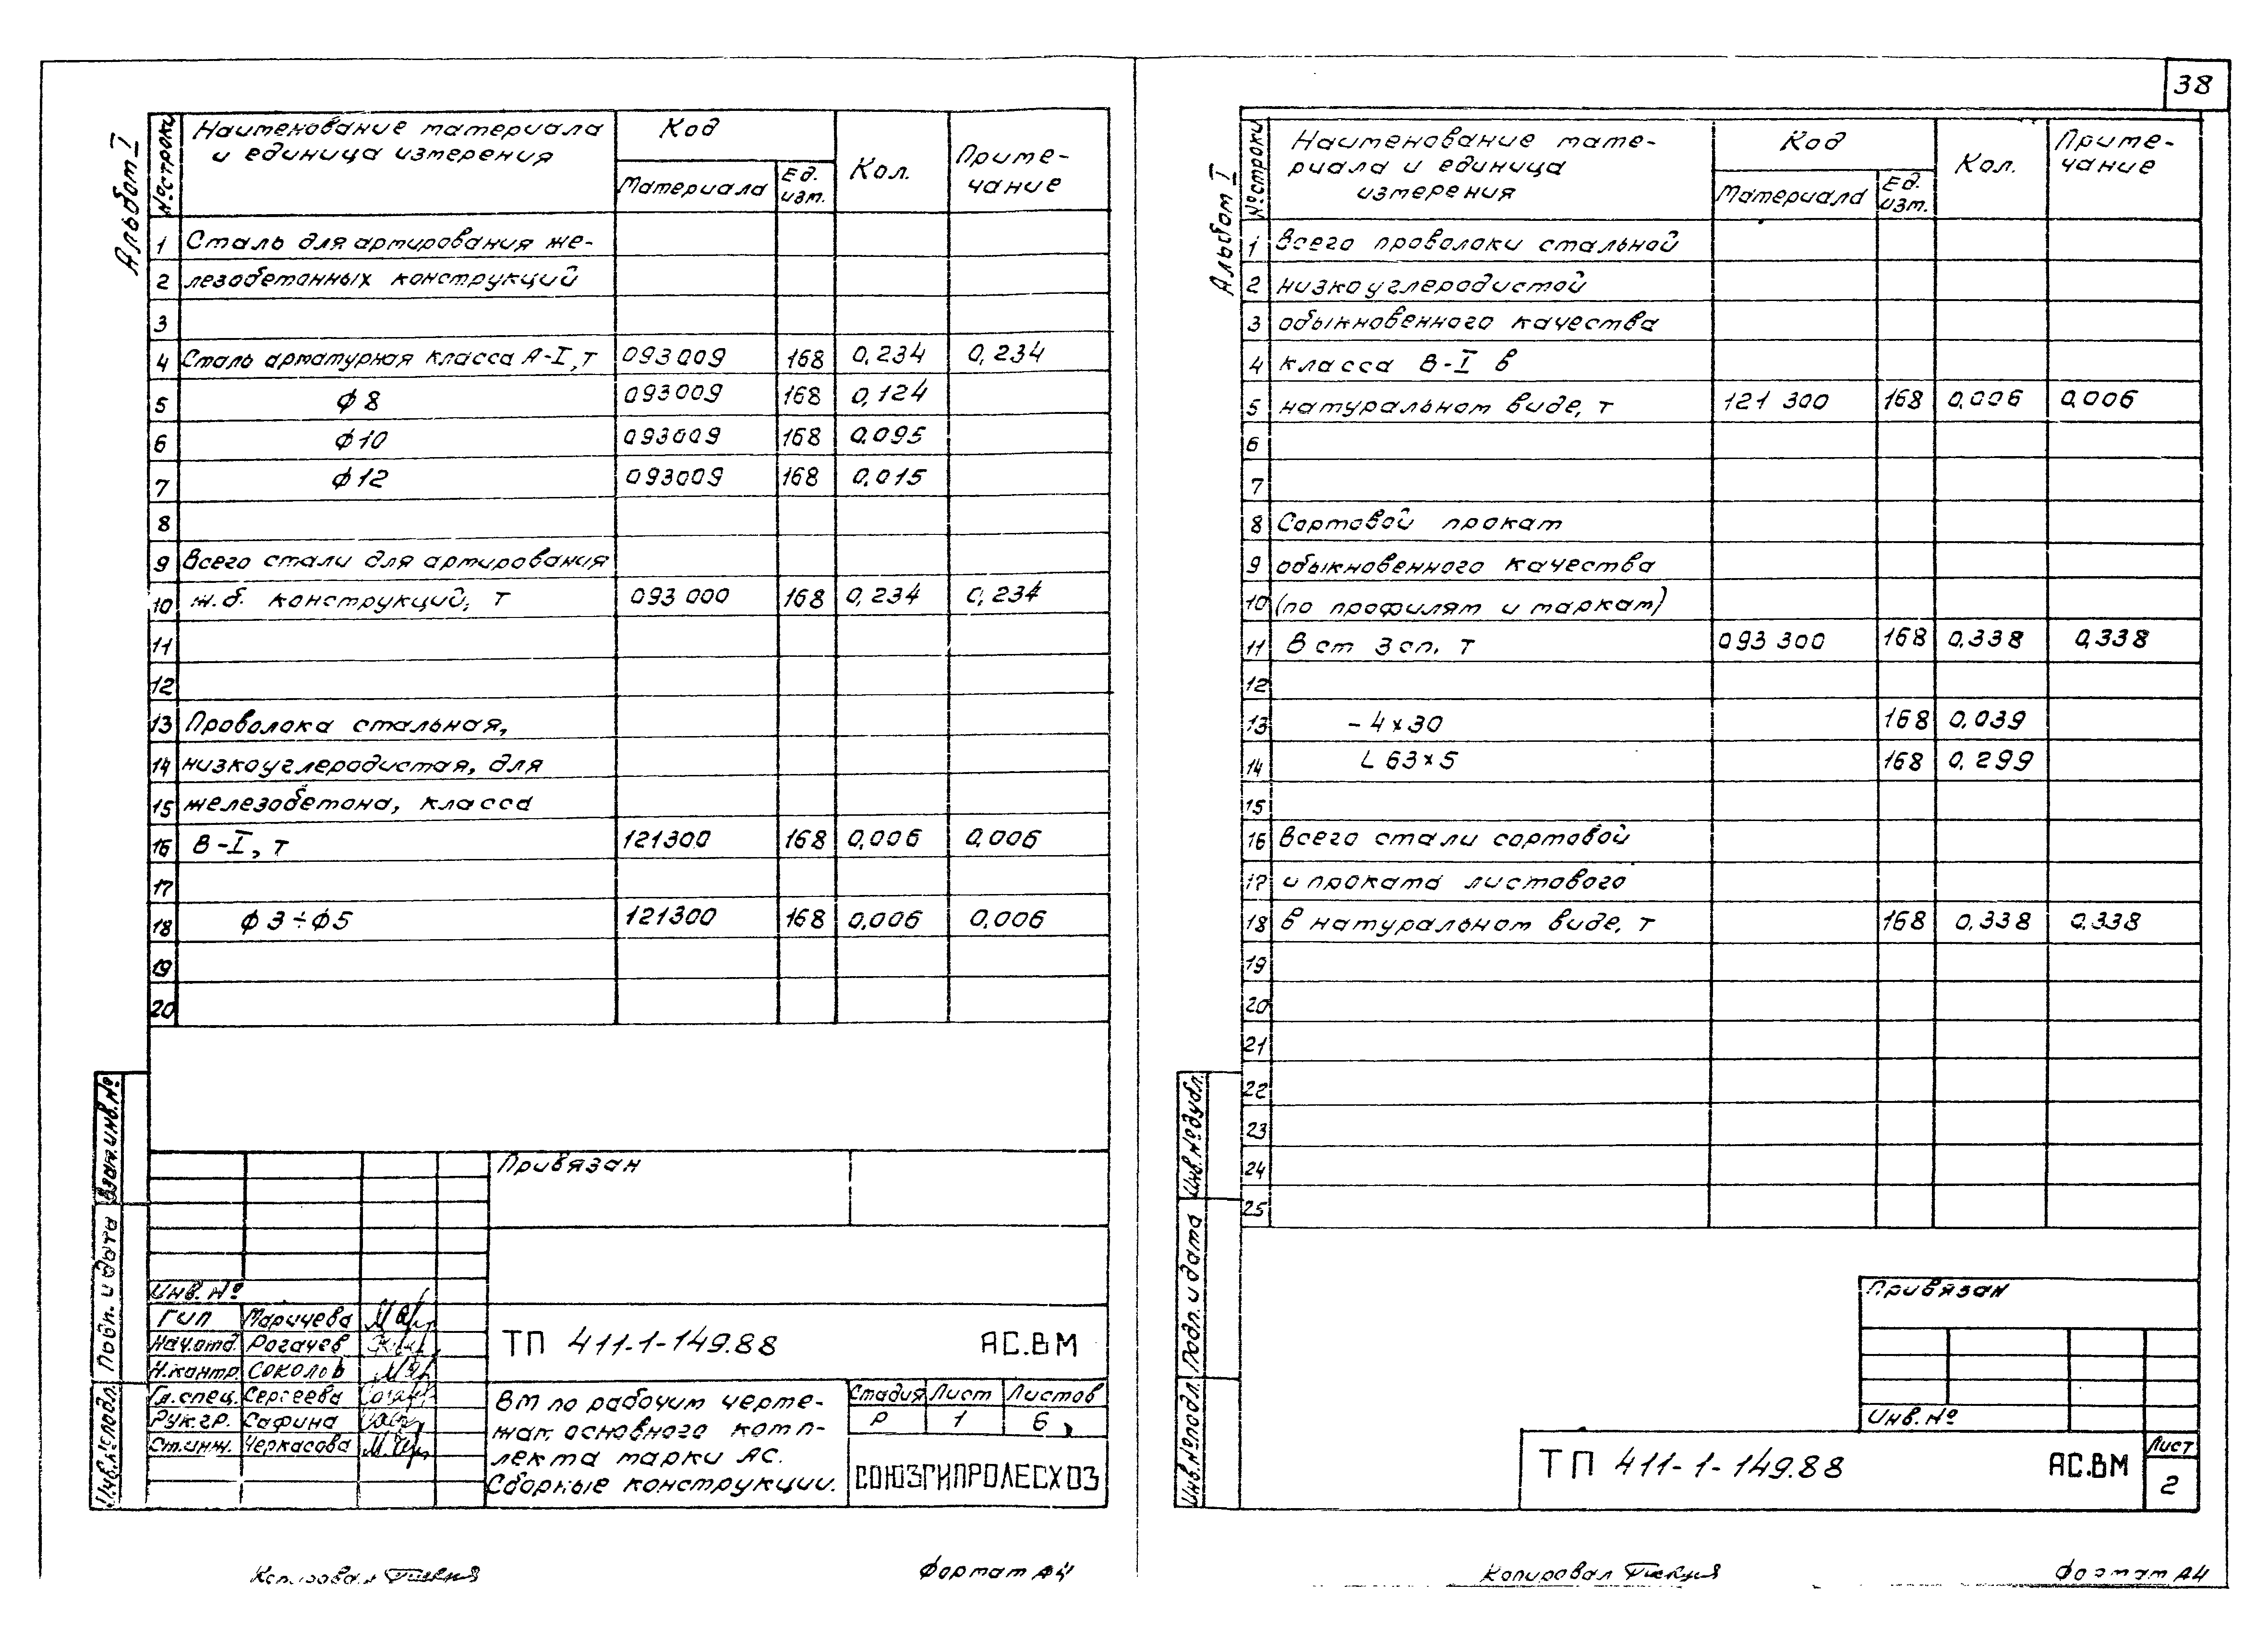 38
Альбом I
№ строки
Наименование материала
и единица измерения
Код
Материала
Ед.
изм.
Кол.
Приме-
чание
1 Сталь для армирования же-
2 лезобетонных конструкций
3
4 Сталь арматурная класса А-I, т 093009 168 0,234 0,234
5 ϕ8 093009 168 0,124
6 ϕ10 093009 168 0,095
7 ϕ12 093009 168 0,015
8
9 Всего стали для армирования
10 ж.б. конструкций, т 093 000 168 0,234 0,234
11
12
13 Проволока стальная,
14 низкоуглеродистая, для
15 железобетона, класса
16 В-I, т 121300 168 0,006 0,006
17
18 ϕ3÷ϕ5 121300 168 0,006 0,006
19
20
Взам.инв.№
Подп. и дата
Инв.№ подл.
Привязан
Инв. №
ГИП Маричева
Нач.отд. Рогачев
Н.контр. Соколов
Гл.спец. Сергеева
Рук.гр. Сафина
Ст.инж. Черкасова
ТП 411-1-149.88 АС.ВМ
ВМ по рабочим черте-
жам основного комп-
лекта марки АС.
Сборные конструкции.
Стадия Лист Листов
Р 1 6
СОЮЗГИПРОЛЕСХОЗ
Копировал
Формат А4
Альбом I
№ строки
Наименование мате-
риала и единица
измерения
Код
Материала
Ед.
изм.
Кол.
Приме-
чание
1 Всего проволоки стальной
2 низкоуглеродистой
3 обыкновенного качества
4 класса В-I в
5 натуральном виде, т 121 300 168 0,006 0,006
6
7
8 Сортовой прокат
9 обыкновенного качества
10 (по профилям и маркам)
11 В ст 3 сп, т 093 300 168 0,338 0,338
12
13 - 4×30 168 0,039
14 L 63×5 168 0,299
15
16 Всего стали сортовой
17 и проката листового
18 в натуральном виде, т 168 0,338 0,338
19
20
21
22
23
24
25
Инв.№ дубл.
Подп. и дата
Инв.№ подл.
Привязан
Инв. №
ТП 411-1-149.88 АС.ВМ
Лист
2
Копировал
Формат А4